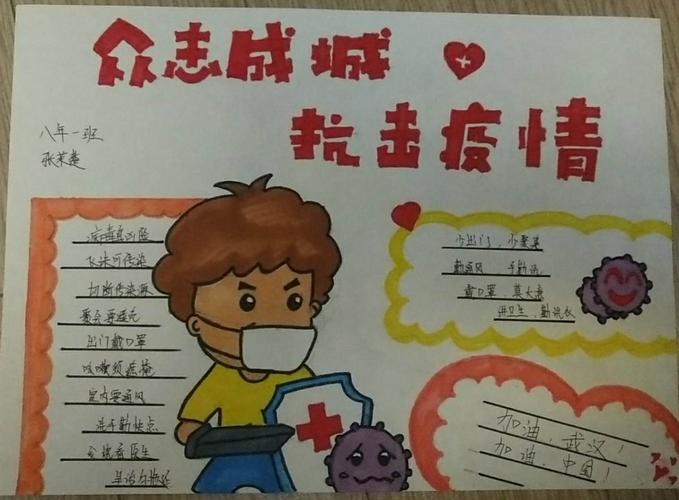 众志成城
抗击疫情
八年一班
张茉楚
病毒真凶险
飞沫可传染
切断传染源
聚会要避免
出门戴口罩
咳嗽须遮掩
室内要通风
洗手勤快点
生
早治
少出门,少聚集
勤通风 手勤洗
戴口罩,莫大意
讲卫生,勤洗衣
加油,武汉!
加油,中国!